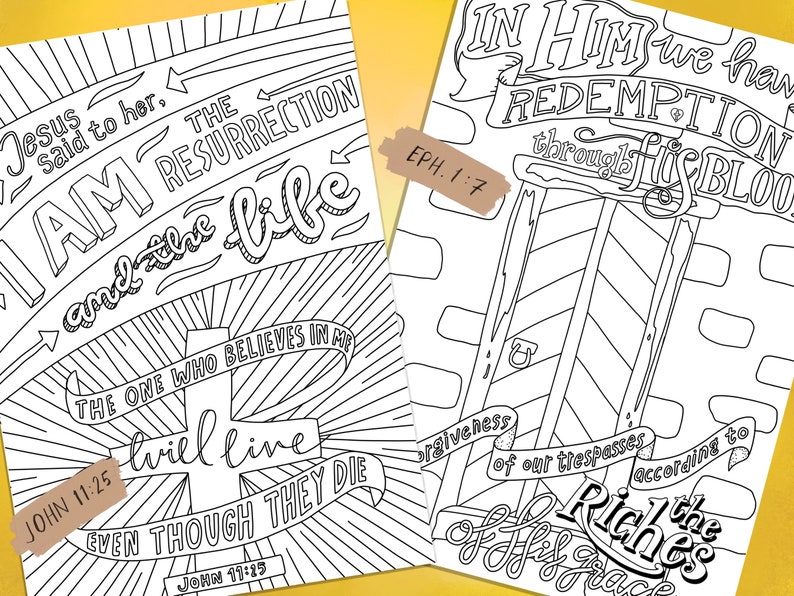 Jesus
said to her,
I AM
THE
RESURRECTION
and the life
THE ONE WHO BELIEVES IN ME
will live
EVEN THOUGH THEY DIE
JOHN 11:25
JOHN 11:25
IN HIM we hav
REDEMPTION
through His BLOO
EPH. 1:7
orgiveness
of our trespasses
according to
the
Riches
of His grace